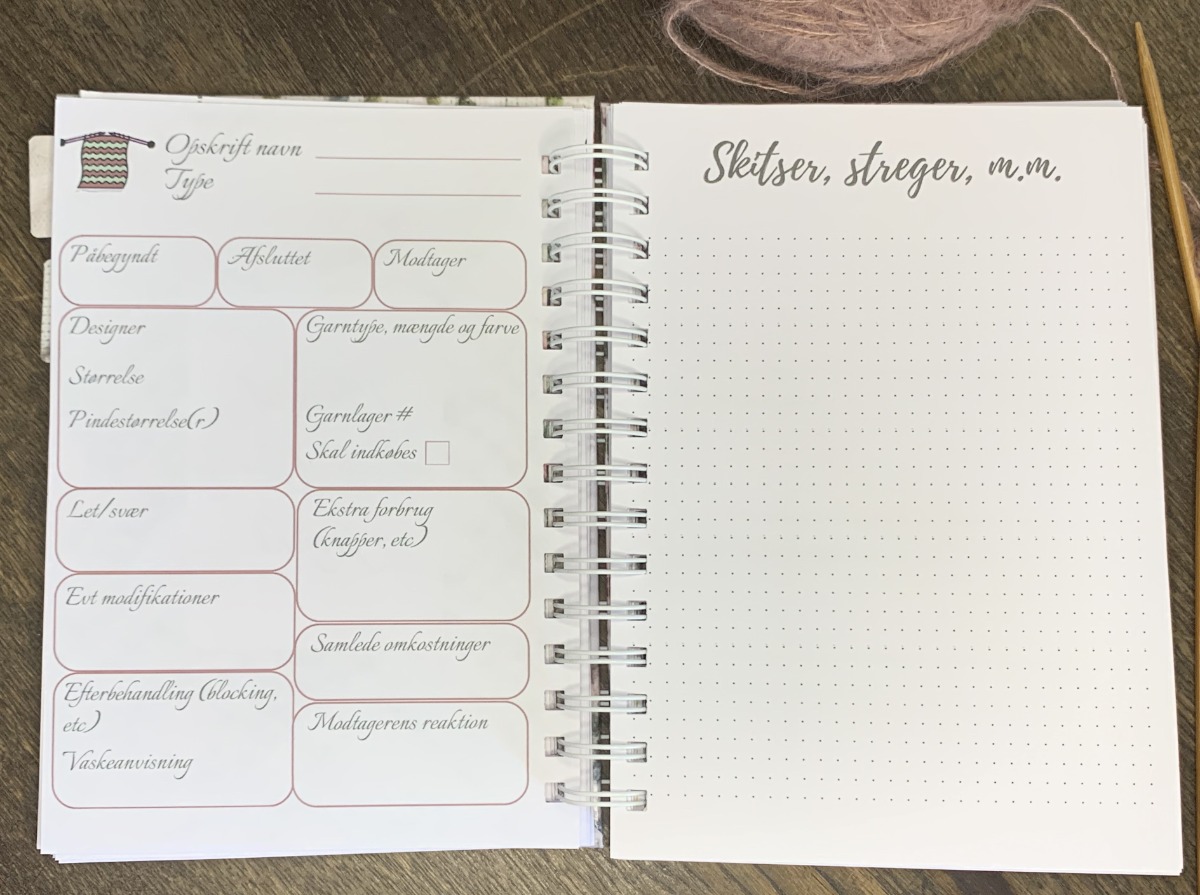 Opskrift navn
Type
Påbegyndt
Afsluttet
Modtager
Designer
Størrelse
Pindestørrelse(r)
Garntype, mængde og farve
Garnlager #
Skal indkøbes
Let/svær
Ekstra forbrug
(knapper, etc)
Evt modifikationer
Samlede omkostninger
Efterbehandling (blocking,
etc)
Vaskeanvisning
Modtagerens reaktion
Skitser, streger, m.m.